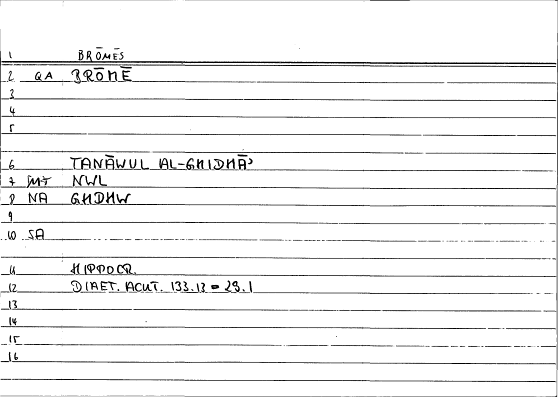 1 BRŌMĒS
2 QA BRŌMĒ
3
4
5
6 TANĀWUL AL-GHIDHĀʾ
7 MT NWL
8 NA GHDHW
9
10 SA
11 HIPPOCR.
12 DIAET. ACUT. 133.13 = 29.1
13
14
15
16